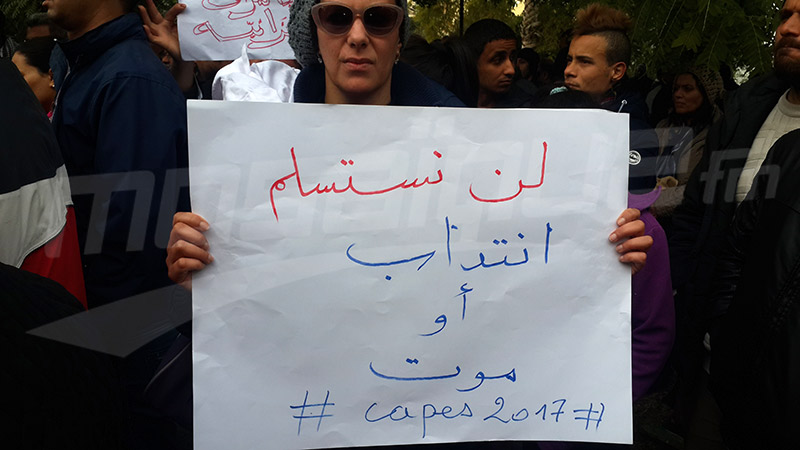 لن نستسلم
انتداب
أو
موت
# capes 2017 #
mosaique fm